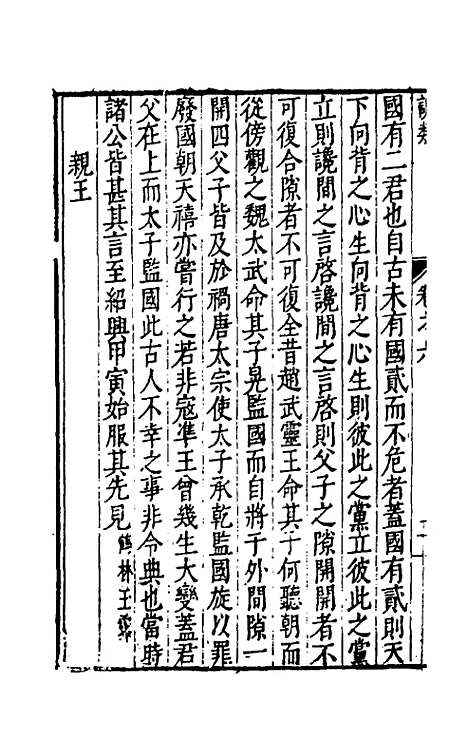 國有二君也自古未有國貳而不危者蓋國有貳則天
下向背之心生向背之心生則彼此之黨立彼此之黨
立則讒間之言啓讒間之言啓則父子之隙開開者不
可復合隙者不可復全昔趙武靈王命其子何聽朝而
從傍觀之魏太武命其子晃監國而自將于外間隙一
開四父子皆及於禍唐太宗使太子承乾監國旋以罪
廢國朝天禧亦嘗行之若非寇準王曾幾生大變蓋君
父在上而太子監國此古人不幸之事非令典也當時
諸公皆甚其言至紹興甲寅始服其先見鶴林玉露
親王
卷之六